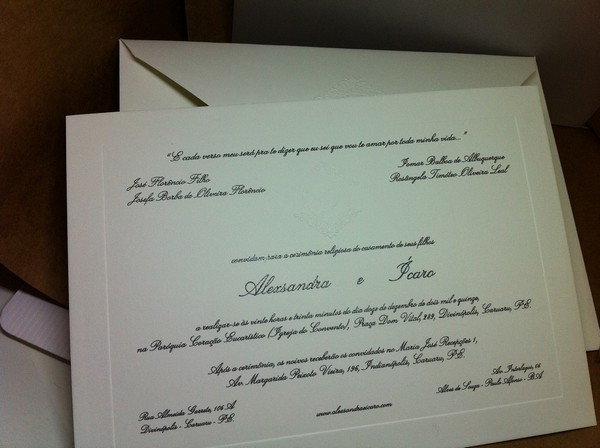 "E cada verso meu será pra te dizer que eu sei que vou te amar por toda minha vida..."
José Florêncio Filho
Josefa Borba de Oliveira Florêncio
Iomar Balboa de Albuquerque
Rosângela Timóteo Oliveira Leal
convidam para a cerimônia religiosa do casamento de seus filhos
Alexsandra e Ícaro
a realizar-se às vinte horas e trinta minutos do dia doze de dezembro de dois mil e quinze,
na Paróquia Coração Eucarístico (Igreja do Convento), Praça Dom Vital, Divinópolis, Caruaru, P.E.
Após a cerimônia, os noivos receberão os convidados no Maria José Recepções 1,
Av. Margarida Peixoto Vieira, 196, Indianópolis, Caruaru, P.E.
Rua Almeida Garrete, 106 A
Divinópolis - Caruaru - P.E.
www.alexsandraeicaro.com
Av. 26
Alves de Souza - Paulo Afonso - B.A